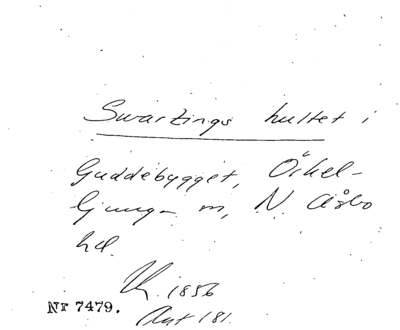 Swartings hultet i
Guddebygget, Örkel-
ljunga m, N Åsbo
hd.
1856
Nr 7479.
Art 181.